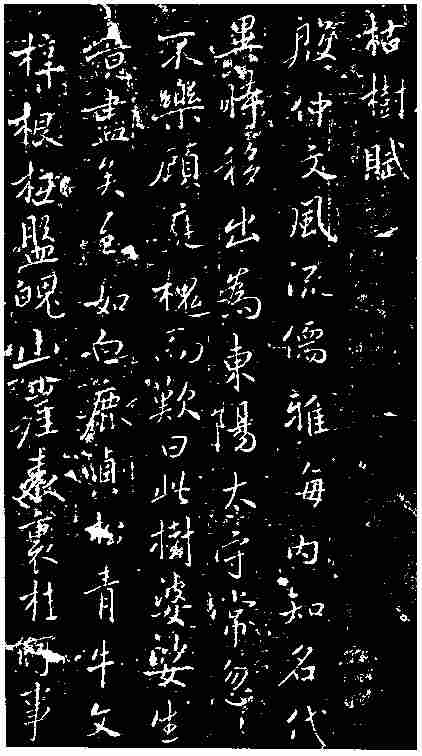 枯樹賦
殷仲文風流儒雅海内知名代
異時移出為東陽太守常忽〻
不樂顧庭槐而歎曰此樹婆娑生
意盡矣至如白鹿貞松青牛文
梓根柢盤魄山崖表裏桂何事